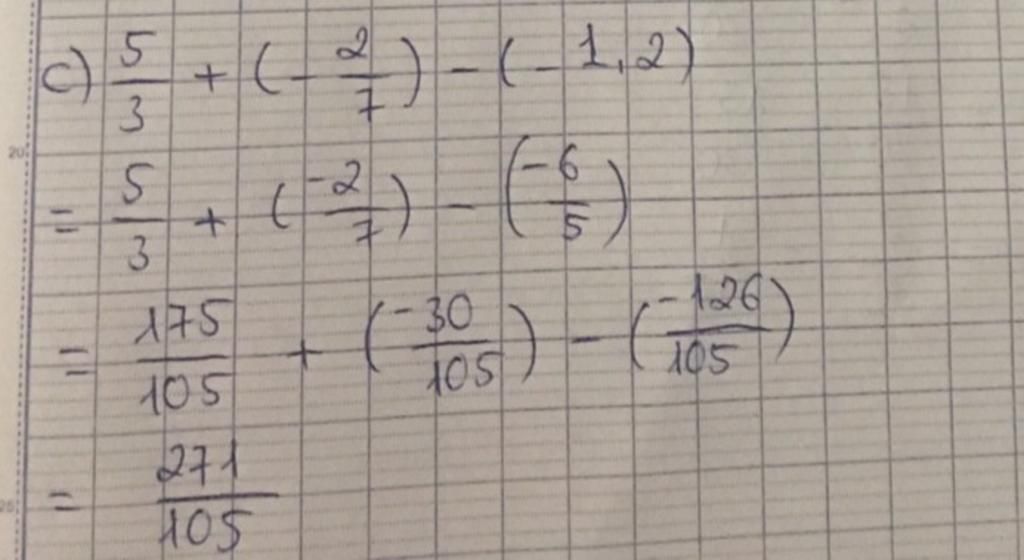 c) 5/3 + (- 2/7) - (- 1,2)
= 5/3 + (-2/7) - (-6/5)
= 175/105 + (-30/105) - (-126/105)
= 271/105